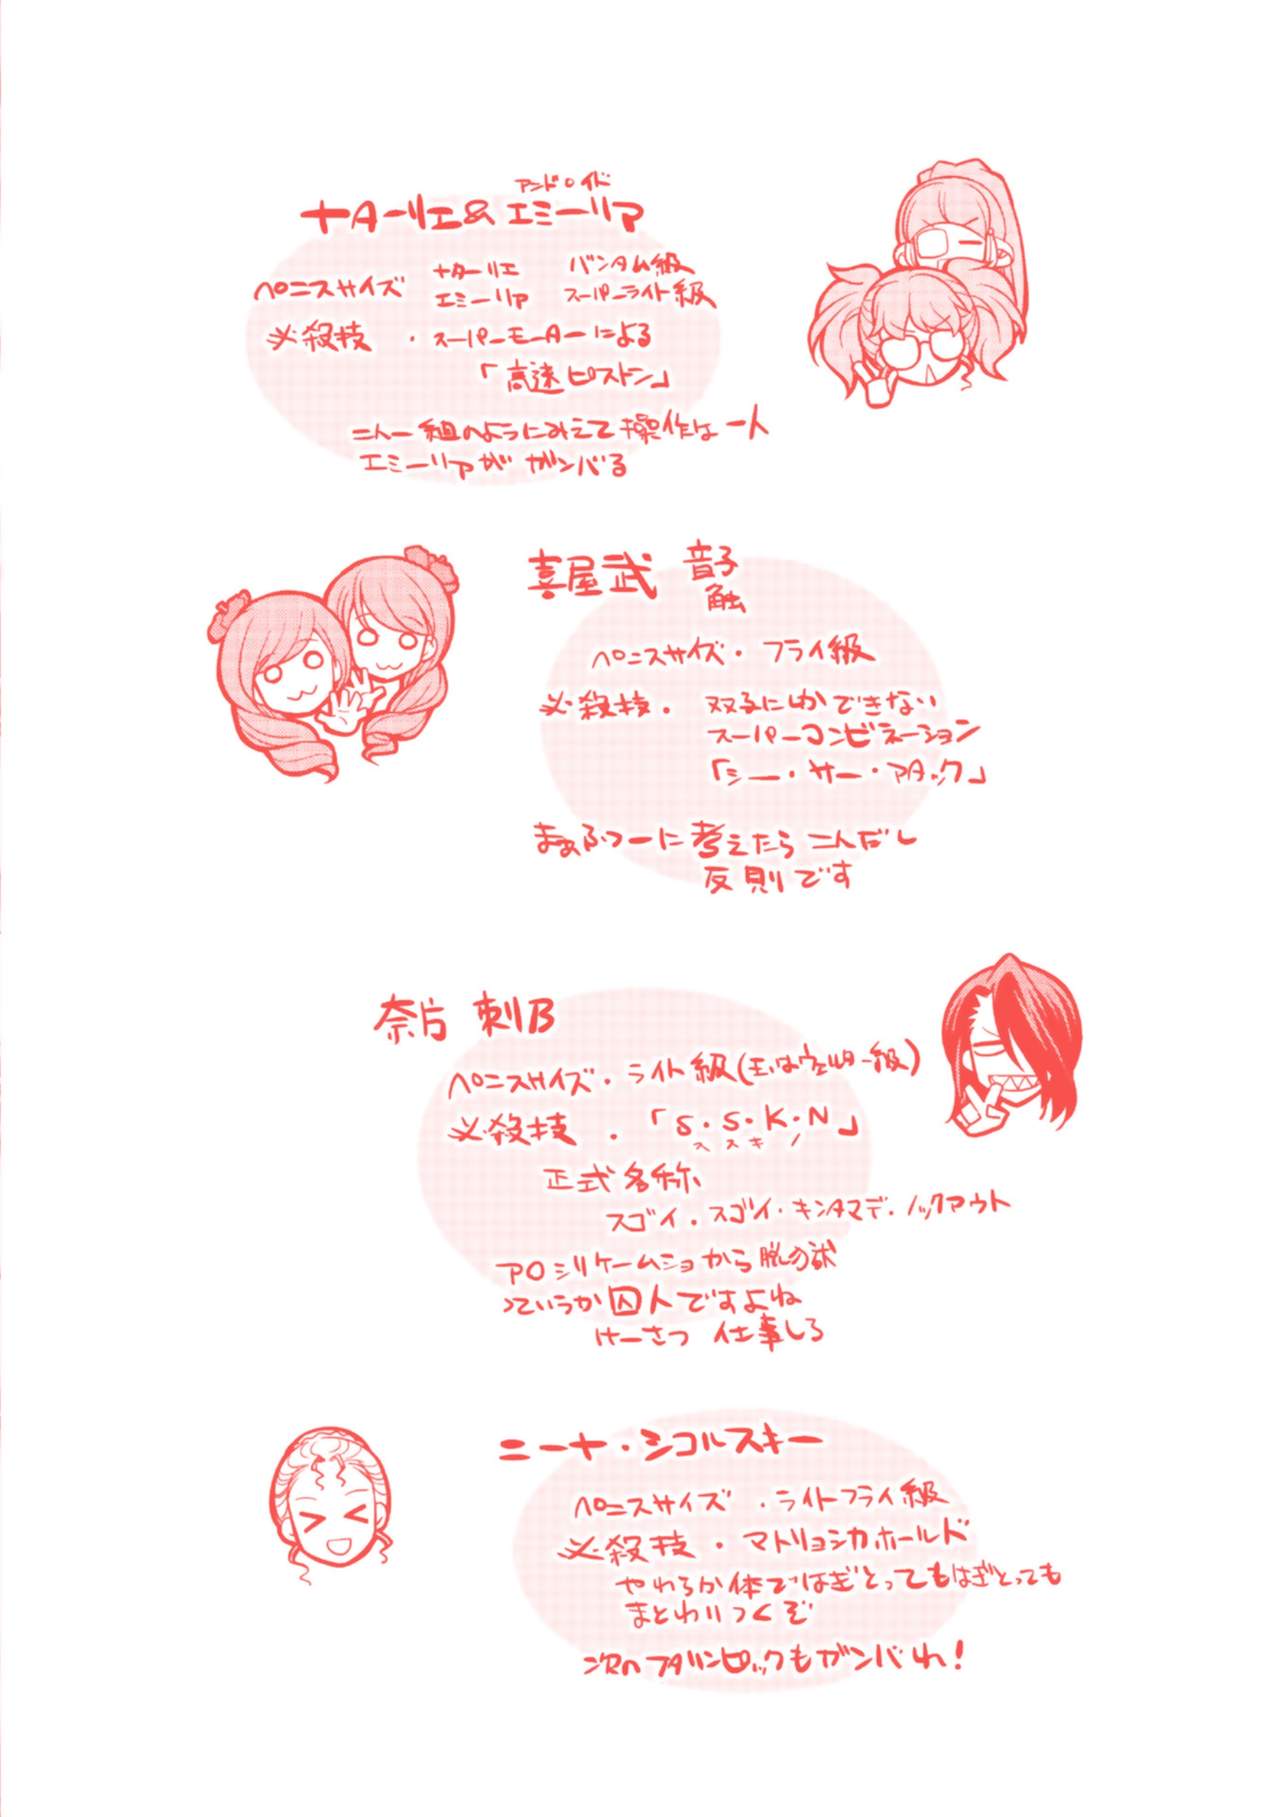 アンドロイド
ナAーリエ& エミーリア
ペニスサイズ ナターリエ バンタム級
エミーリア スーパーライト級
必殺技 ・スーパーモーAーによる
「高速ピストン」
二人一組のようにみえて操作は一人
エミーリアが ガンバる
喜屋武 音子
触
ペニスサイズ・フライ級
必殺技・ 双子にしかできない
スーパーコンビネーション
「シー・サー・アタック」
まぁふつーに考えたら二人だし
反則です
奈片 刺B
ペニスサイズ・ライト級(玉はウェルター級)
必殺技 ・「S・S・K・N」
ススキノ
正式名称
スゴイ・スゴイ・キンタマデ・ノックアウト
アOシリケームショから脱の獄
っていうか囚人ですよね
けーさつ 仕事しろ
ニーナ・シコルスキー
ペニスサイズ ・ライトフライ級
必殺技・マトリョシカホールド
やわらか体ではぎとってもはぎとっても
まとわりつくぞ
次のフタリンピックもガンバれ!